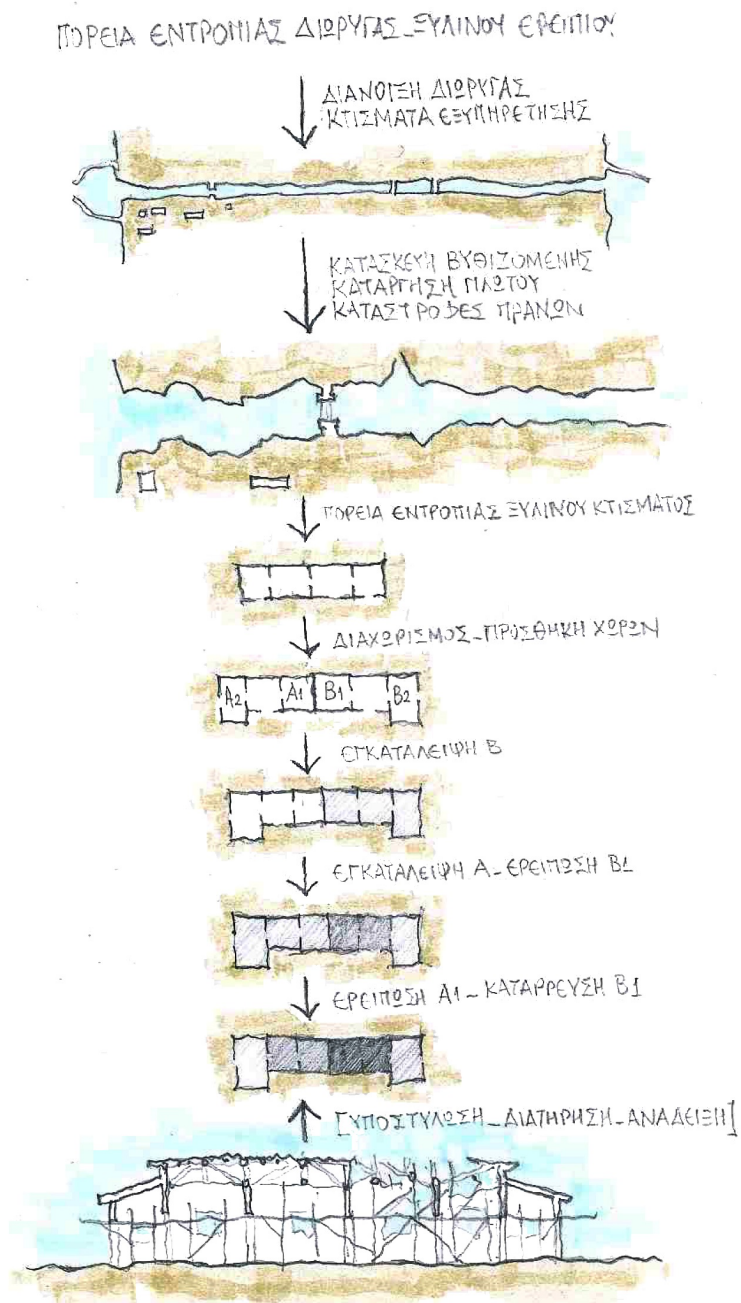 ΠΟΡΕΙΑ ΕΝΤΡΟΠΙΑΣ ΔΙΩΡΥΓΑΣ_ΞΥΛΙΝΟΥ ΕΡΕΙΠΙΟΥ
ΔΙΑΝΟΙΞΗ ΔΙΩΡΥΓΑΣ
ΚΤΙΣΜΑΤΑ ΕΞΥΠΗΡΕΤΗΣΗΣ
ΚΑΤΑΣΚΕΥΗ ΒΥΘΙΖΟΜΕΝΗΣ
ΚΑΤΑΡΓΗΣΗ ΠΛΩΤΟΥ
ΚΑΤΑΣΤΡΟΦΕΣ ΠΡΑΝΩΝ
ΠΟΡΕΙΑ ΕΝΤΡΟΠΙΑΣ ΞΥΛΙΝΟΥ ΚΤΙΣΜΑΤΟΣ
ΔΙΑΧΩΡΙΣΜΟΣ_ΠΡΟΣΘΗΚΗ ΧΩΡΩΝ
Α2 Α1 Β1 Β2
ΕΓΚΑΤΑΛΕΙΨΗ Β
ΕΓΚΑΤΑΛΕΙΨΗ Α_ΕΡΕΙΠΩΣΗ Β1
ΕΡΕΙΠΩΣΗ Α1_ΚΑΤΑΡΡΕΥΣΗ Β1
[ΥΠΟΣΤΥΛΩΣΗ_ΔΙΑΤΗΡΗΣΗ_ΑΝΑΔΕΙΞΗ]